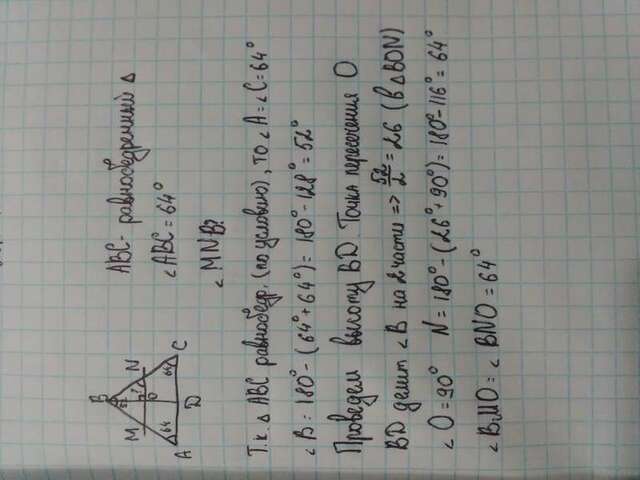 B
M
N
O
64
64
A
D
C
ABC - равнобедренный △
∠ABC = 64°
∠MNB?
Т.к. △ ABC равнобедр. (по условию), то ∠A = ∠C = 64°
∠B = 180° - (64° + 64°) = 180° - 128° = 52°
Проведем высоту BD. Точка пересечения O
BD делит ∠B на 2 части => 52/2 = 26 (в △BON)
∠O = 90° N = 180° - (26° + 90°) = 180° - 116° = 64°
∠BMO = ∠BNO = 64°